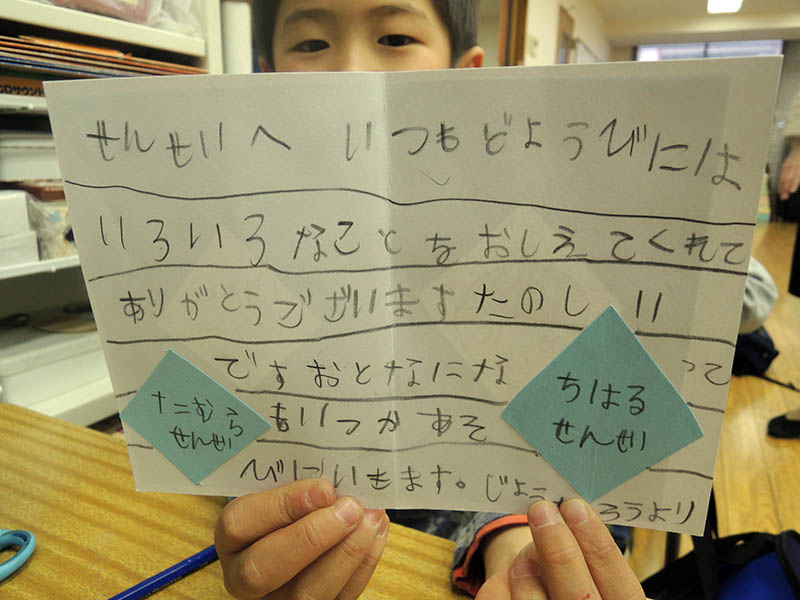 せんせいへ いつもどようびには
いろいろなことをおしえてくれて
ありがとうございますたのしい
ですおとなになって
もいつかあそ
びにいきます。じょう ろうより
ちはる
せんせい
むら
せんせい
CDサウンド